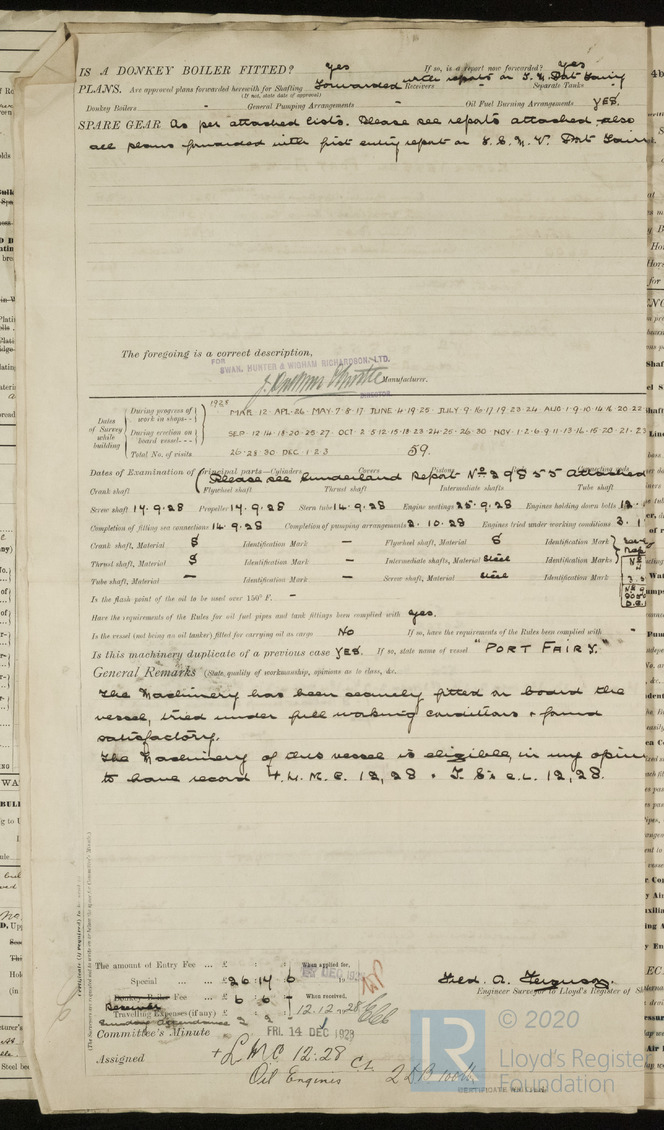 IS A DONKEY BOILER FITTED? yes If so, is a report now forwarded? yes
PLANS. Are approved plans forwarded herewith for Shafting Forwarded with reports on Receivers Separate Tanks
(If not, state date of approval)
Donkey Boilers - General Pumping Arrangements - Oil Fuel Burning Arrangements YES.
SPARE GEAR As per attached lists. Please see reports attached also
all plans forwarded with first entry report on
The foregoing is a correct description,
FOR SWAN, HUNTER & WIGHAM RICHARDSON, LTD.
Manufacturer.
DIRECTOR
1928
Dates of Survey while building
During progress of work in shops-- MAR. 12 · APL. 26 · MAY. 7 · 8 · 17 JUNE 4 · 19 · 25 · JULY 9 · 16 · 17 19 23 24 AUG 1 · 9 · 10 · 14 16 20 22
During erection on board vessel--- SEP. 12 · 14 · 18 · 20 · 25 · 27 · OCT. 2 5 12 · 15 · 18 · 23 · 24 · 25 · 26 · 30 NOV. 1 · 2 · 6 · 9 · 11 · 13 · 16 · 15 · 20 · 21 · 23
Total No. of visits 26 · 28 · 30 DEC 1 · 2 · 3 59.
Dates of Examination of principal parts—Cylinders Covers Pistons Connecting rods
Please see Sunderland Report No 29855 attached
Crank shaft Flywheel shaft Thrust shaft Intermediate shafts Tube shaft
Screw shaft 14.9.28 Propeller 14.9.28 Stern tube 14.9.28 Engine seatings 25.9.28 Engines holding down bolts
Completion of fitting sea connections 14.9.28 Completion of pumping arrangements 2.10.28 Engines tried under working conditions
Crank shaft, Material S Identification Mark — Flywheel shaft, Material S Identification Mark
Thrust shaft, Material S Identification Mark — Intermediate shafts, Material Steel Identification Marks
Tube shaft, Material — Identification Mark — Screw shaft, Material Steel Identification Mark
Is the flash point of the oil to be used over 150° F. -
Have the requirements of the Rules for oil fuel pipes and tank fittings been complied with yes.
Is the vessel (not being an oil tanker) fitted for carrying oil as cargo No If so, have the requirements of the Rules been complied with -
Is this machinery duplicate of a previous case YES. If so, state name of vessel "PORT FAIRY."
General Remarks (State quality of workmanship, opinions as to class, &c.
The Machinery has been securely fitted on board the
vessel, tried under full working conditions & found
satisfactory.
The Machinery of this vessel is eligible, in my opin
to have record + L.M.C. 12,28 · T.S. C.L. 12,28.
Certificate (if required) to be sent to
The amount of Entry Fee ... £ : : When applied for,
Special ... ... £ 26 : 14 : 6 DEC 192
Donkey Boiler Fee ... £ 6 : 6 : - When received,
Travelling Expenses (if any) £ : : 12.12.1928
Sunday attendance 2 2
Fred. A. Ferguson.
Engineer Surveyor to Lloyd's Register of S
Committee's Minute FRI. 14 DEC 1928
Assigned + LMC 12.28 CL
Oil Engines 2 DB
CERTIFICATE WRITTEN
© 2020
LR
Lloyd's Register
Foundation